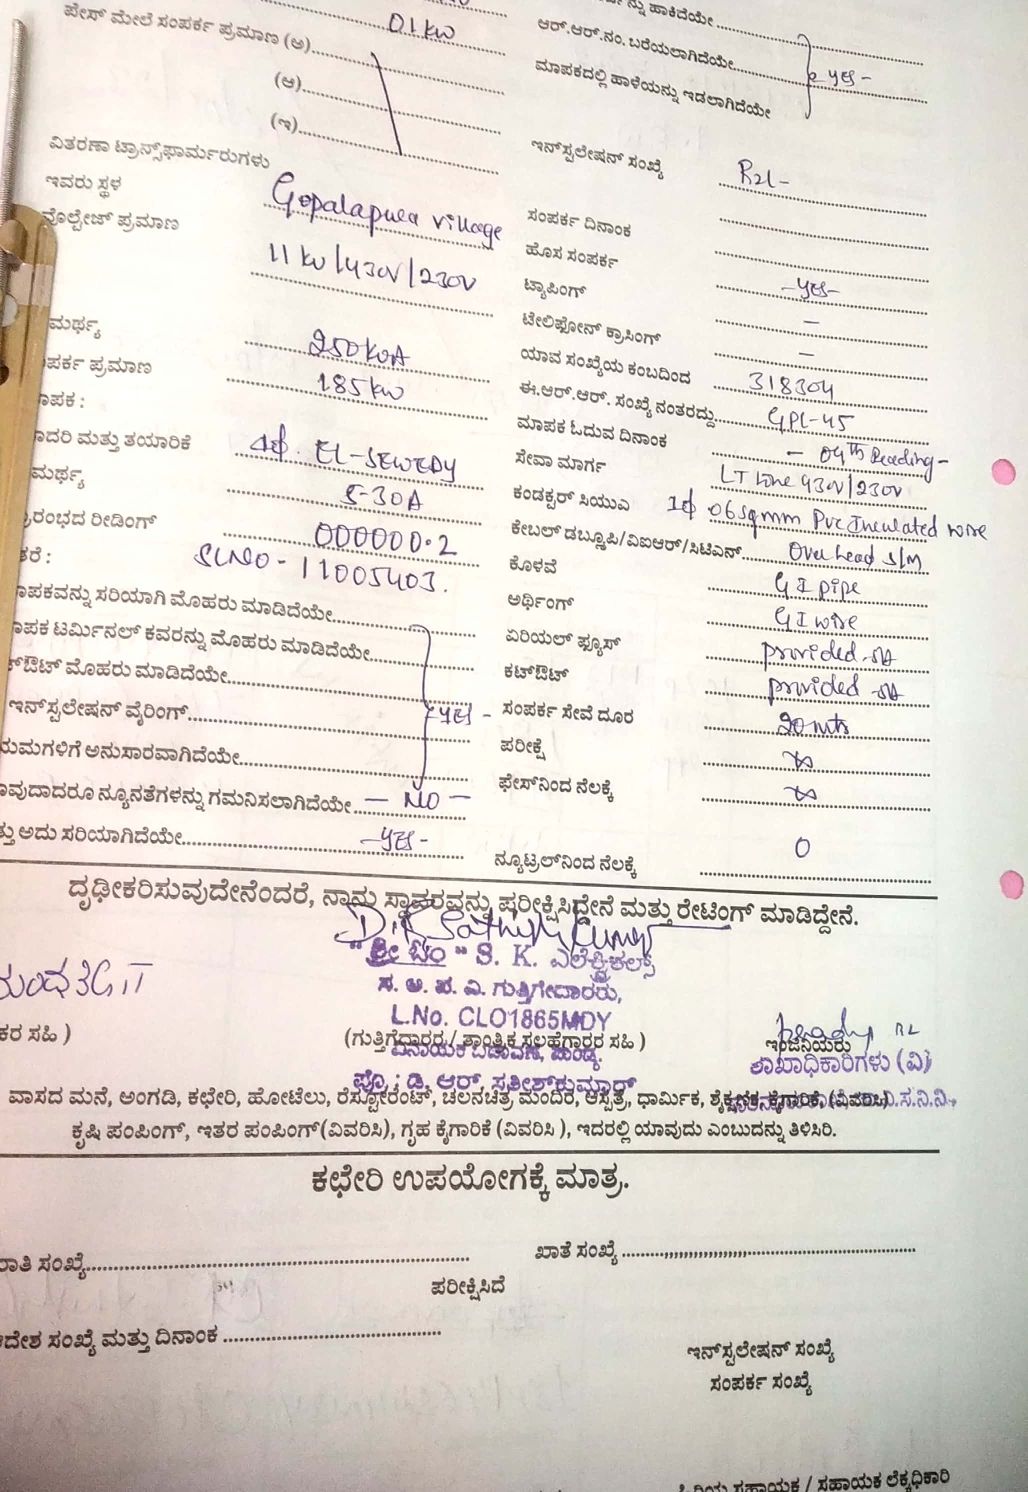 ನ್ನು ಹಾಕಿದೆಯೇ
ಪೇಸ್ ಮೇಲೆ ಸಂಪರ್ಕ ಪ್ರಮಾಣ (ಅ) 01 kW
ಆರ್.ಆರ್.ನಂ. ಬರೆಯಲಾಗಿದೆಯೇ
(ಆ)
ಮಾಪಕದಲ್ಲಿ ಹಾಳೆಯನ್ನು ಇಡಲಾಗಿದೆಯೇ YES -
(ಇ)
ಇನ್‌ಸ್ಟಲೇಷನ್ ಸಂಖ್ಯೆ
ವಿತರಣಾ ಟ್ರಾನ್ಸ್‌ಫಾರ್ಮರುಗಳು
ಇವರು ಸ್ಥಳ Gopalapura village
ಸಂಪರ್ಕ ದಿನಾಂಕ
ವೊಲ್ಟೇಜ್ ಪ್ರಮಾಣ 11 kV/430V/230V
ಹೊಸ ಸಂಪರ್ಕ -YES-
ಟ್ಯಾಪಿಂಗ್ –
ಮರ್ಥ್ಯ 250 KVA
ಟೇಲಿಫೋನ್ ಕ್ರಾಸಿಂಗ್ –
ಪರ್ಕ ಪ್ರಮಾಣ 185 kW
ಯಾವ ಸಂಖ್ಯೆಯ ಕಂಬದಿಂದ 318304
ಾಪಕ :
ಈ.ಆರ್.ಆರ್. ಸಂಖ್ಯೆ ನಂತರದ್ದು GPL-45
ಾದರಿ ಮತ್ತು ತಯಾರಿಕೆ 1ϕ. EL-SEWEDY
ಮಾಪಕ ಓದುವ ದಿನಾಂಕ - 04th Reading -
ಮರ್ಥ್ಯ 5-30A
ಸೇವಾ ಮಾರ್ಗ LT Line 430V/230V
್ರಾರಂಭದ ರೀಡಿಂಗ್ 000000.2
ಕಂಡಕ್ಟರ್ ಸಿಯುಎ 1ϕ 06 sqmm PVC Insulated wire
ತರೆ : SLNO - 11005403.
ಕೇಬಲ್ ಡಬ್ಲೂಪಿ/ವಿಐಆರ್/ಸಿಟಿಎನ್ Over head S/M
ಾಪಕವನ್ನು ಸರಿಯಾಗಿ ಮೊಹರು ಮಾಡಿದೆಯೇ
ಕೊಳವೆ GI pipe
ಾಪಕ ಟರ್ಮಿನಲ್ ಕವರನ್ನು ಮೊಹರು ಮಾಡಿದೆಯೇ
ಅರ್ಥಿಂಗ್ GI wire
್‌ಔಟ್ ಮೊಹರು ಮಾಡಿದೆಯೇ
ಏರಿಯಲ್ ಫ್ಯೂಸ್ provided -5A
ಇನ್‌ಸ್ಟಲೇಷನ್ ವೈರಿಂಗ್ YES -
ಕಟ್‌ಔಟ್ provided -5A
ಯಮಗಳಿಗೆ ಅನುಸಾರವಾಗಿದೆಯೇ
ಸಂಪರ್ಕ ಸೇವೆ ದೂರ 20 mts
ಾವುದಾದರೂ ನ್ಯೂನತೆಗಳನ್ನು ಗಮನಿಸಲಾಗಿದೆಯೇ - NO -
ಪರೀಕ್ಷೆ ∞
ತ್ತು ಅದು ಸರಿಯಾಗಿದೆಯೇ -YES-
ಫೇಸ್‌ನಿಂದ ನೆಲಕ್ಕೆ ∞
ನ್ಯೂಟ್ರಲ್‌ನಿಂದ ನೆಲಕ್ಕೆ 0
ದೃಢೀಕರಿಸುವುದೇನೆಂದರೆ, ನಾನು ಸ್ಥಾವರವನ್ನು ಪರೀಕ್ಷಿಸಿದ್ದೇನೆ ಮತ್ತು ರೇಟಿಂಗ್ ಮಾಡಿದ್ದೇನೆ.
D.R Sathish Kumar
"ಶ್ರೀ ಓಂ" S. K. ಎಲೆಕ್ಟ್ರಿಕಲ್ಸ್
ಸ. ಅ. ಪ. ವಿ. ಗುತ್ತಿಗೇದಾರರು,
L.No. CLO1865MDY
ಕರ ಸಹಿ )
(ಗುತ್ತಿಗೆದಾರರ / ತಾಂತ್ರಿಕ ಸಲಹೆಗಾರರ ಸಹಿ )
ಇಂಜಿನಿಯರು
ವಿನಾಯಕ ಬಡಾವಣೆ, ಮಂಡ್ಯ.
ಶಾಖಾಧಿಕಾರಿಗಳು (ವಿ)
ಪ್ರೊ : ಡಿ. ಆರ್. ಸತೀಶ್‌ಕುಮಾರ್
ವಾಸದ ಮನೆ, ಅಂಗಡಿ, ಕಛೇರಿ, ಹೋಟೆಲು, ರೆಸ್ಟೋರೆಂಟ್, ಚಲನಚಿತ್ರ ಮಂದಿರ, ಆಸ್ಪತ್ರೆ, ಧಾರ್ಮಿಕ, ಶೈಕ್ಷಣಿಕ, ಕೈಗಾರಿಕೆ, (ವಿವರಿಸಿ)
ಕೃಷಿ ಪಂಪಿಂಗ್, ಇತರ ಪಂಪಿಂಗ್(ವಿವರಿಸಿ), ಗೃಹ ಕೈಗಾರಿಕೆ (ವಿವರಿಸಿ ), ಇದರಲ್ಲಿ ಯಾವುದು ಎಂಬುದನ್ನು ತಿಳಿಸಿರಿ.
ಕಛೇರಿ ಉಪಯೋಗಕ್ಕೆ ಮಾತ್ರ.
ರಾತಿ ಸಂಖ್ಯೆ
ಖಾತೆ ಸಂಖ್ಯೆ
ಪರೀಕ್ಷಿಸಿದೆ
ಆದೇಶ ಸಂಖ್ಯೆ ಮತ್ತು ದಿನಾಂಕ
ಇನ್‌ಸ್ಟಲೇಷನ್ ಸಂಖ್ಯೆ
ಸಂಪರ್ಕ ಸಂಖ್ಯೆ
ಹಿರಿಯ ಸಹಾಯಕ / ಸಹಾಯಕ ಲೆಕ್ಕಧಿಕಾರಿ